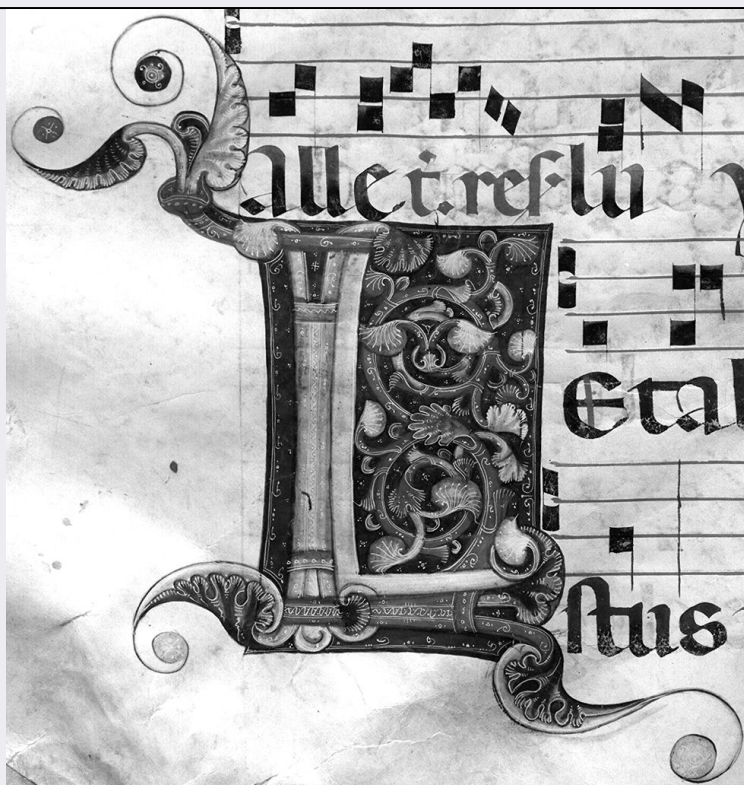 alle t. res. lu
L Etab
stus